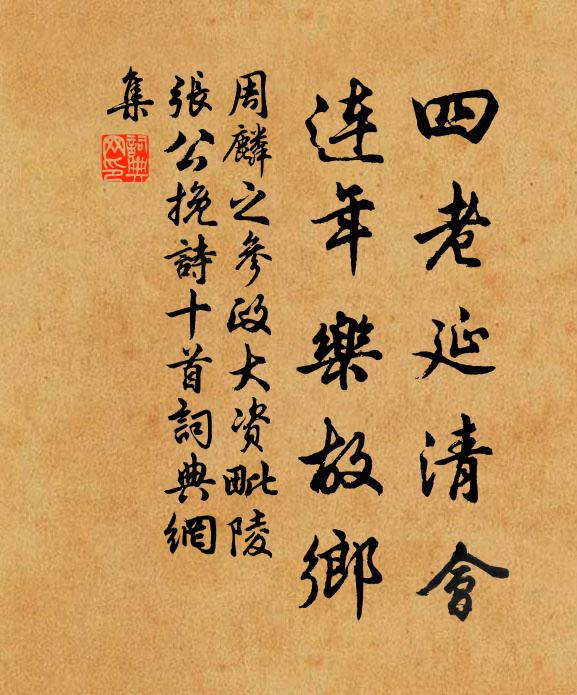 四老延清會
連年樂故鄉
周麟之參政大資毗陵
張公挽詩十首詞典網
集
詞典網印